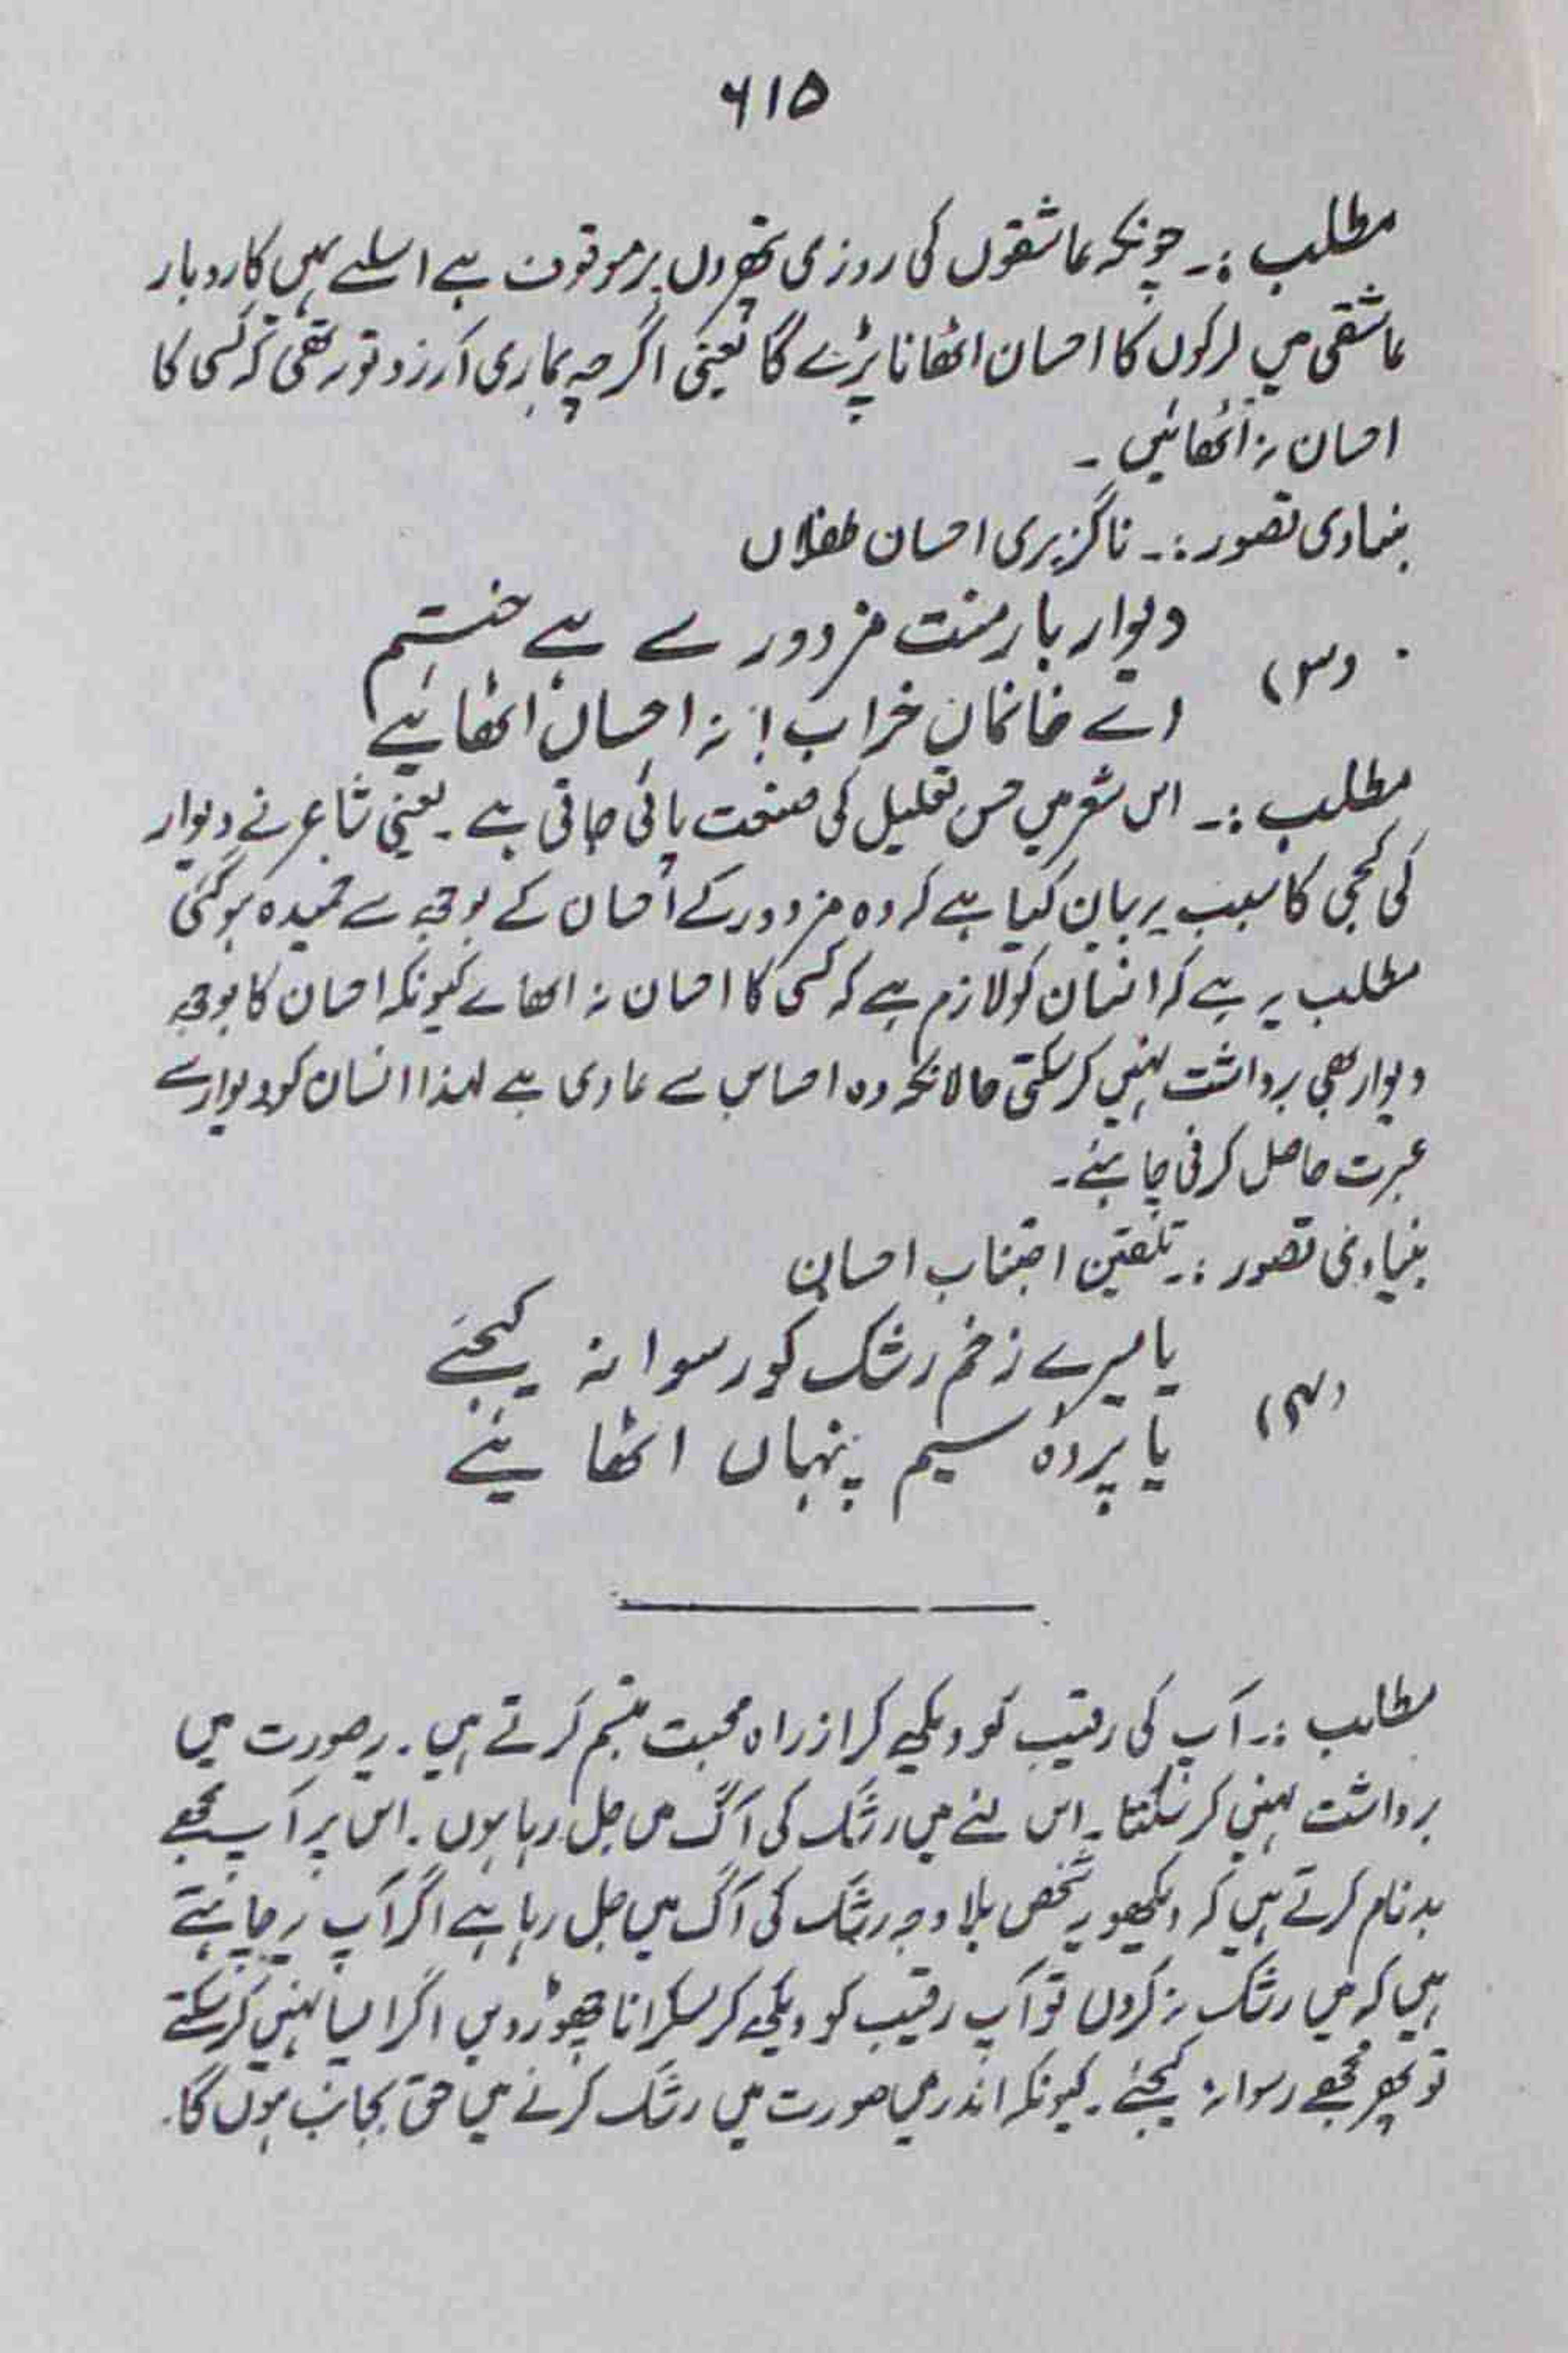 ۶۱۵
مطلب :۔ چونکہ عاشقوں کی روزی پتھروں پر موقوف ہے اسلئے ہمیں کاروبار
عاشقی میں لڑکوں کا احسان اٹھانا پڑے گا یعنی اگرچہ ہماری آرزو تو یہ تھی کہ کسی کا
احسان نہ اُٹھائیں ۔
بنیادی تصور :۔ ناگزیری احسان طفلاں
(۳) دیوار بار منت مزدور سے ہے خم
اے خانماں خراب ! نہ احساں اٹھائیے
مطلب :۔ اس شعر میں حسن تعلیل کی صنعت پائی جاتی ہے ۔ یعنی شاعر نے دیوار
کی کجی کا سبب یہ بیان کیا ہے کہ وہ مزدور کے احسان کے بوجھ سے خمیدہ ہو گئی
مطلب یہ ہے کہ انسان کو لازم ہے کہ کسی کا احسان نہ اٹھاے کیونکہ احسان کا بوجھ
دیوار بھی برداشت نہیں کر سکتی حالانکہ وہ احساس سے عاری ہے لہذا انسان کو دیوار سے
عبرت حاصل کرنی چاہئے ۔
بنیادی تصور :۔ تلقین اجتناب احسان
(۴) یا میرے زخم رشک کو رسوا نہ کیجئے
یا پردہ سیم پنہاں اٹھائیے
مطلب :۔ آپ کی رقیب کو دیکھ کر از راہ محبت تبسم کرتے ہیں ۔ یہ صورت میں
برداشت نہیں کر سکتا ۔ اس لئے میں رشک کی آگ میں جل رہا ہوں ۔ اس پر آپ مجھے
بدنام کرتے ہیں کہ دیکھو یہ شخص بلا وجہ رشک کی آگ میں جل رہا ہے اگر آپ یہ چاہتے
ہیں کہ میں رشک نہ کروں تو آپ رقیب کو دیکھ کر مسکرانا چھوڑ دیں اگر ایسا نہیں کر سکتے
تو پھر مجھے رسوا نہ کیجئے ۔ کیونکہ اندریں صورت میں رشک کرنے میں حق بجانب ہوں گا ۔